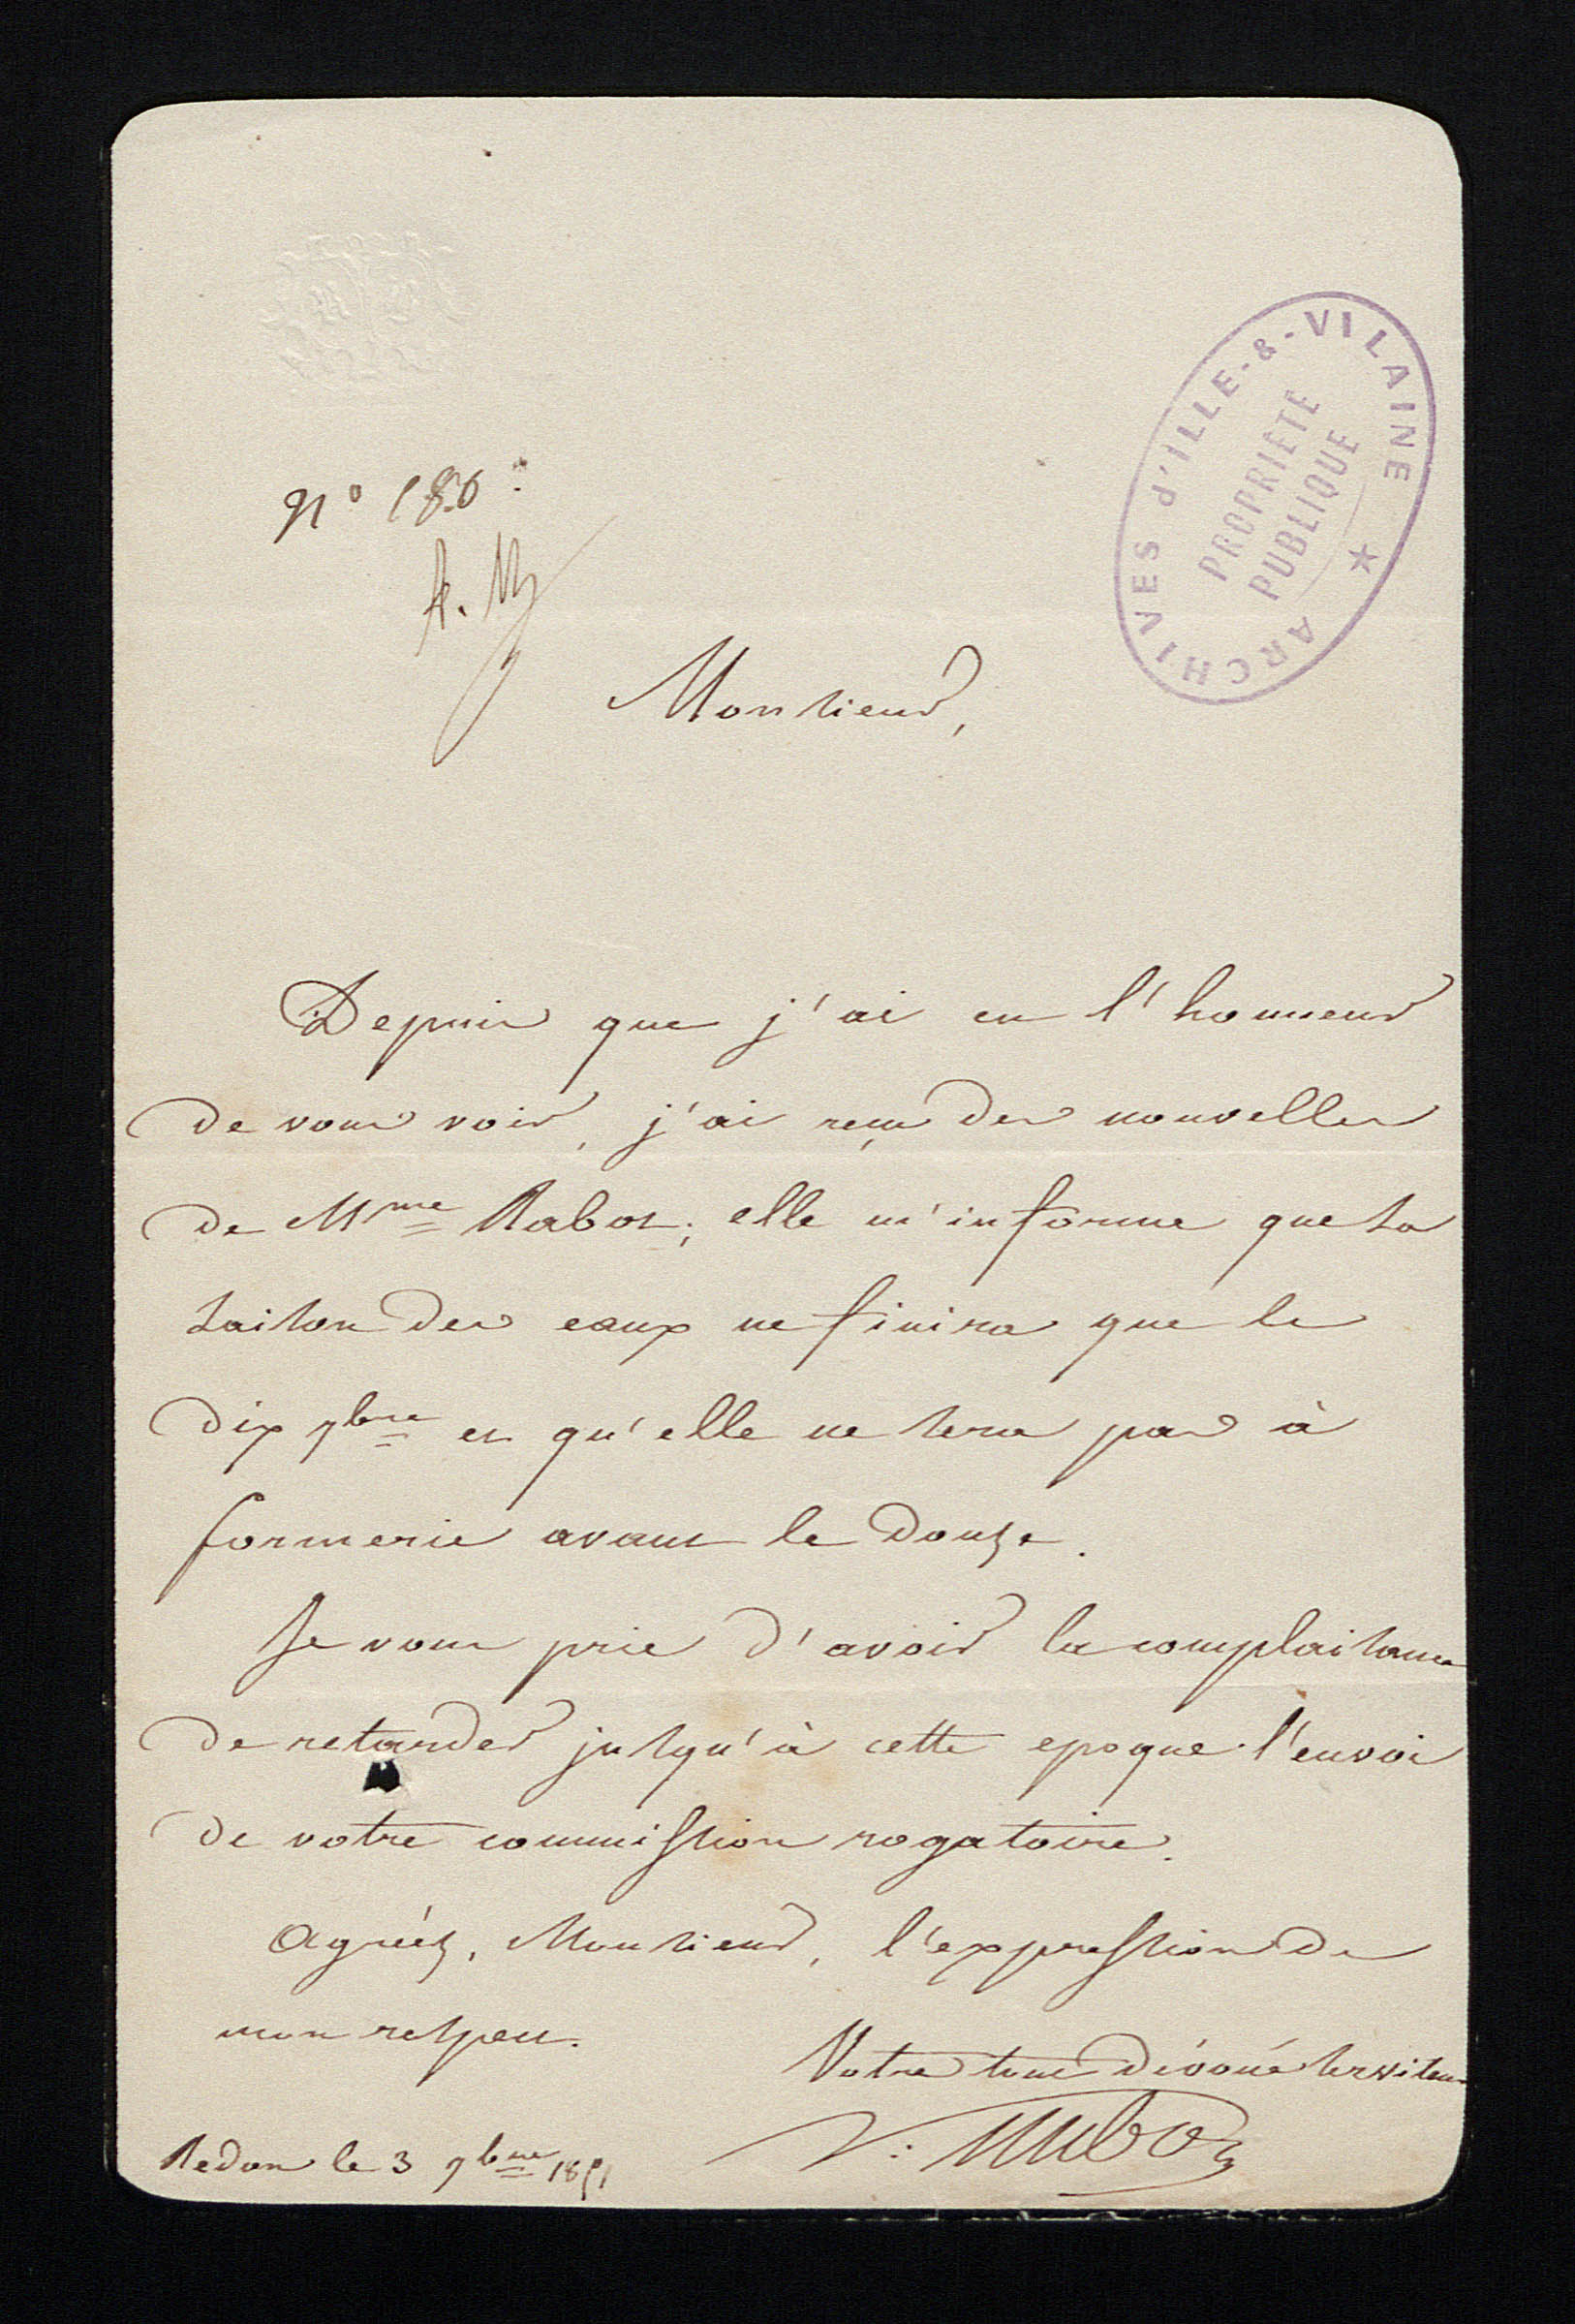 ARCHIVES d'ILLE-&-VILAINE
PROPRIÉTÉ
PUBLIQUE
N° 186
Monsieur,
Depuis que j'ai eu l'honneur
de vous voir, j'ai reçu des nouvelles
de Mme Rabot; elle m'informe que la
saison des eaux ne finira que le
dix 7bre et qu'elle ne sera pas à
formerie avant le douze.
Je vous prie d'avoir la complaisance
de retarder jusqu'à cette epoque l'envoi
de votre commission rogatoire.
Agréez, Monsieur, l'expression de
mon respect.
Votre tout dévoué serviteur
Redon le 3 7bre 1851